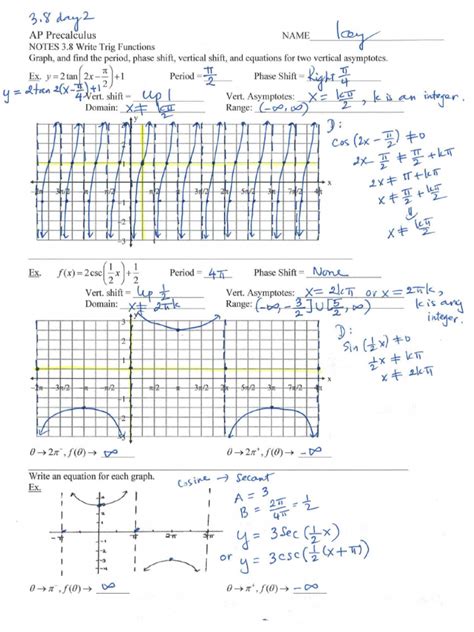 3.8 day 2
AP Precalculus NAME Key
NOTES 3.8 Write Trig Functions
Graph, and find the period, phase shift, vertical shift, and equations for two vertical asymptotes.
Ex. y = 2tan(2x − π/2) + 1 Period = π/2 Phase Shift = Right π/4
y = 2tan2(x − π/4) + 1
Vert. shift = up 1 Vert. Asymptotes: x = kπ/2, k is an integer.
Domain: x ≠ kπ/2 Range: (-∞, ∞)
D:
cos(2x − π/2) ≠ 0
2x − π/2 ≠ π/2 + kπ
2x ≠ π + kπ
x ≠ π/2 + kπ/2
⇓
x ≠ kπ/2
Ex. f(x) = 2csc(1/2 x) + 1/2 Period = 4π Phase Shift = None
Vert. shift = up 1/2 Vert. Asymptotes: x = 2kπ or x = 2πk,
Domain: x ≠ 2πk Range: (-∞, -3/2] ∪ [5/2, ∞) k is any integer.
D:
sin(1/2 x) ≠ 0
1/2 x ≠ kπ
x ≠ 2kπ
θ → 2π⁻, f(θ) → ∞ θ → 2π⁺, f(θ) → -∞
Write an equation for each graph.
Ex.
cosine → secant
A = 3
B = 2π/4π = 1/2
y = 3sec(1/2 x)
or y = 3csc(1/2(x + π))
θ → π⁻, f(θ) → ∞ θ → π⁺, f(θ) → -∞